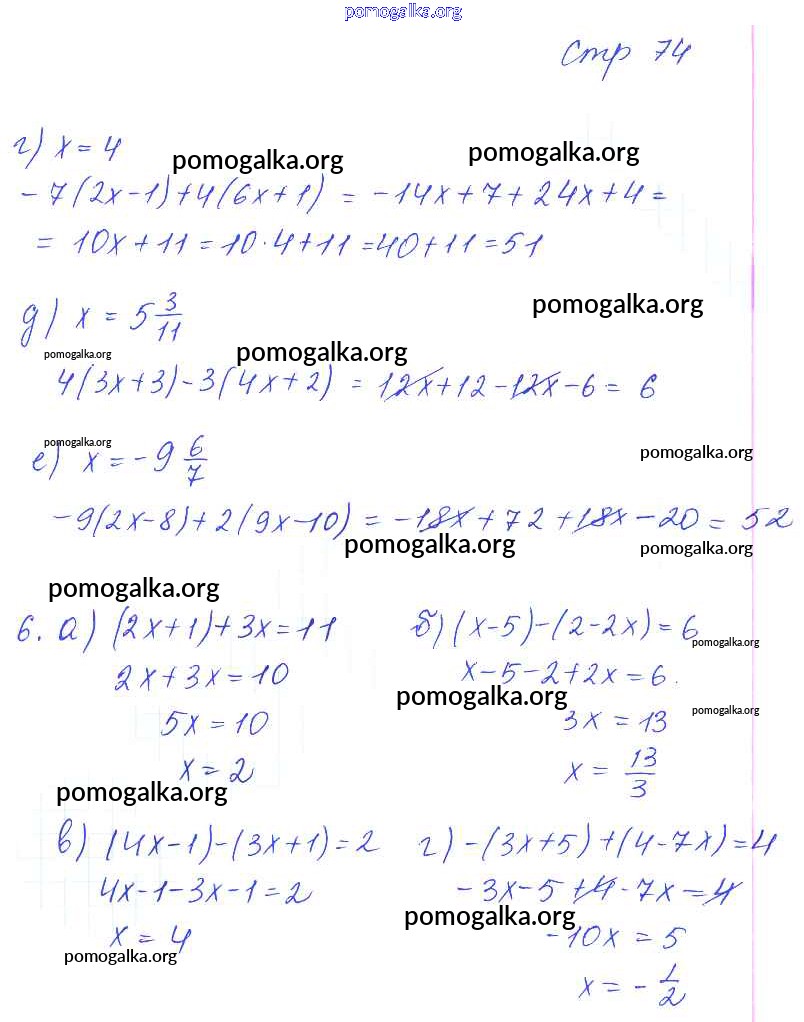 pomogalka.org
Стр 74
г) x = 4
pomogalka.org pomogalka.org
-7(2x-1)+4(6x+1) = -14x+7+24x+4=
= 10x+11=10·4+11=40+11=51
pomogalka.org
д) x = 5 3/11
pomogalka.org pomogalka.org
4(3x+3)-3(4x+2) = 12x+12-12x-6= 6
pomogalka.org
е) x = -9 6/7
pomogalka.org
-9(2x-8)+2(9x-10) = -18x+72+18x-20= 52
pomogalka.org pomogalka.org
pomogalka.org
6. а) (2x+1)+3x=11 б) (x-5)-(2-2x)=6
pomogalka.org
2x+3x=10 x-5-2+2x=6.
pomogalka.org
5x=10 3x=13
pomogalka.org
x=2 x= 13/3
pomogalka.org
в) (4x-1)-(3x+1)=2 г) -(3x+5)+(4-7x)=4
4x-1-3x-1=2 -3x-5+4-7x=4
pomogalka.org
x=4 -10x=5
pomogalka.org
x=- 1/2